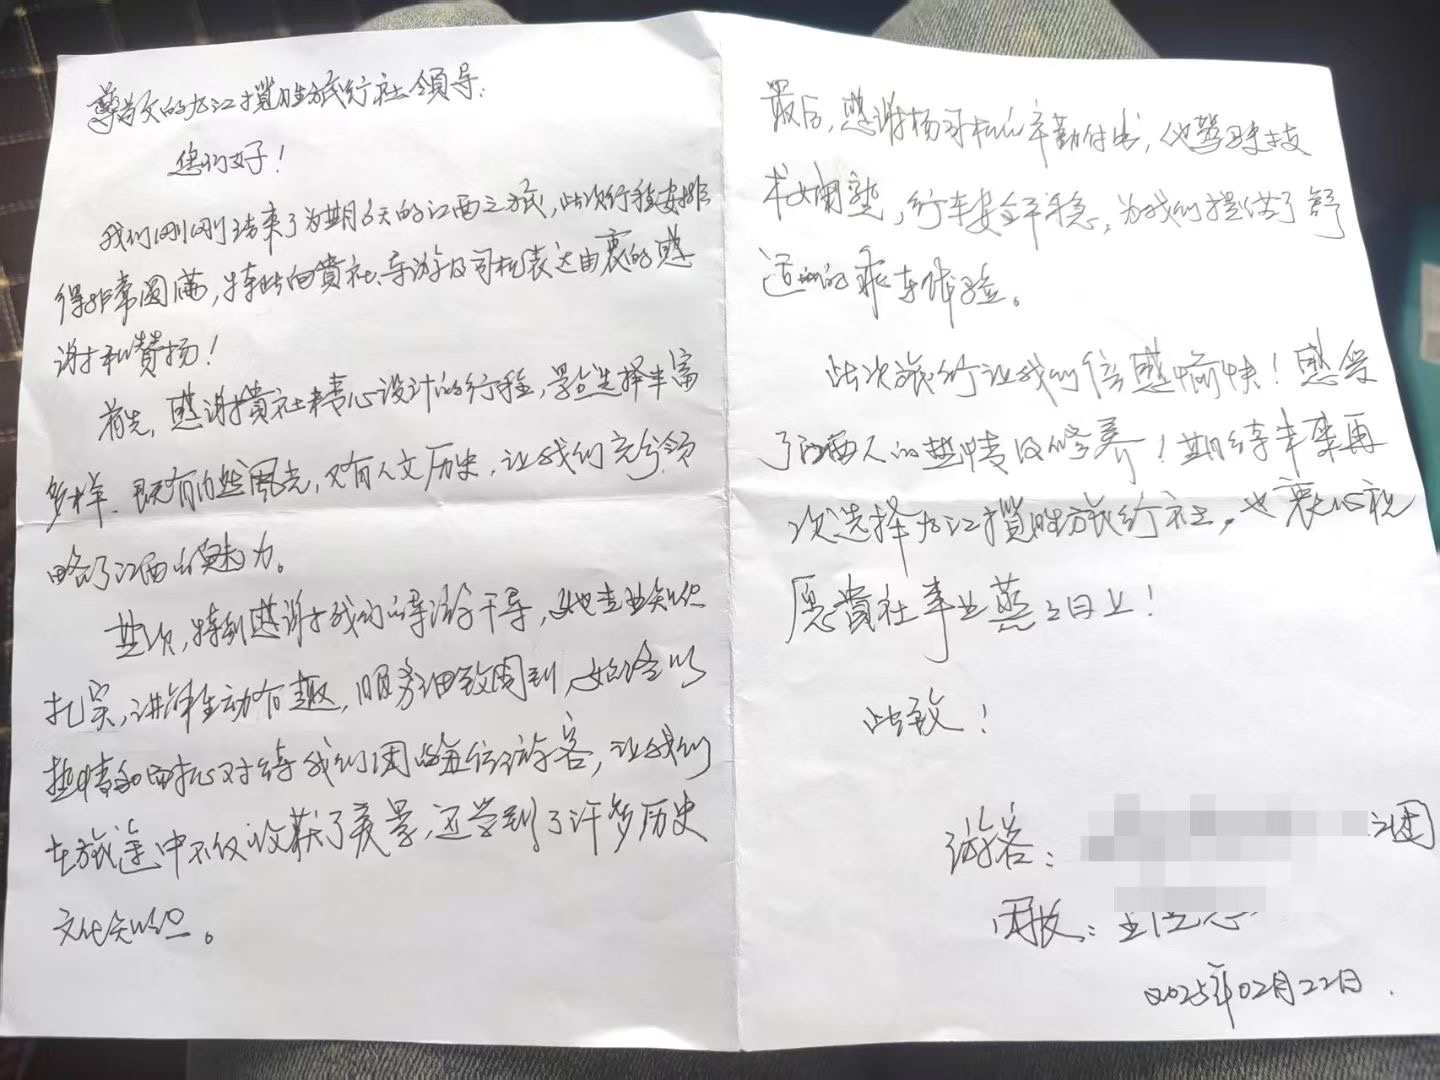 尊敬的九江揽胜旅行社领导:
您们好!
我们刚刚结束了为期6天的江西之旅,此次行程安排
得非常圆满,特此向貴社、导游及司机表达由衷的感
谢和赞扬!
首先,感谢貴社精心设计的行程,景点选择丰富
多样、既有自然風光,又有人文历史,让我们充分领
略了江西的魅力。
其次,特别感谢我们的导游干导,她专业知识
扎实,讲解生动有趣,服务细致周到,始终以
热情和耐心对待我们团的每位游客,让我们
在旅途中不仅收获了美景,还学到了许多历史
文化知识。
最后,感谢杨司机的辛勤付出,他驾驶技
术娴熟,行车安全平稳,为我们提供了舒
适的乘车体验。
此次旅行让我们倍感愉快!感受
了江西人的热情及修养!期待未来再
次选择九江揽胜旅行社,也衷心祝
愿貴社事业蒸蒸日上!
此致!
游客: 团
2025年02月22日.